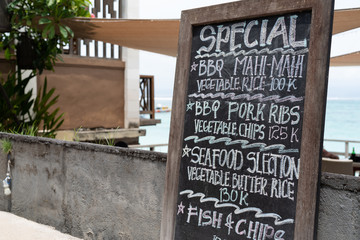 SPECIAL
★BBQ MAHI-MAHI
VEGETABLE RICE 100 K
★BBQ PORK RIBS
VEGETABLE CHIPS 125 K
★SEAFOOD SLECTION
VEGETABLE BUTTER RICE
130 K
★FISH & CHIPS